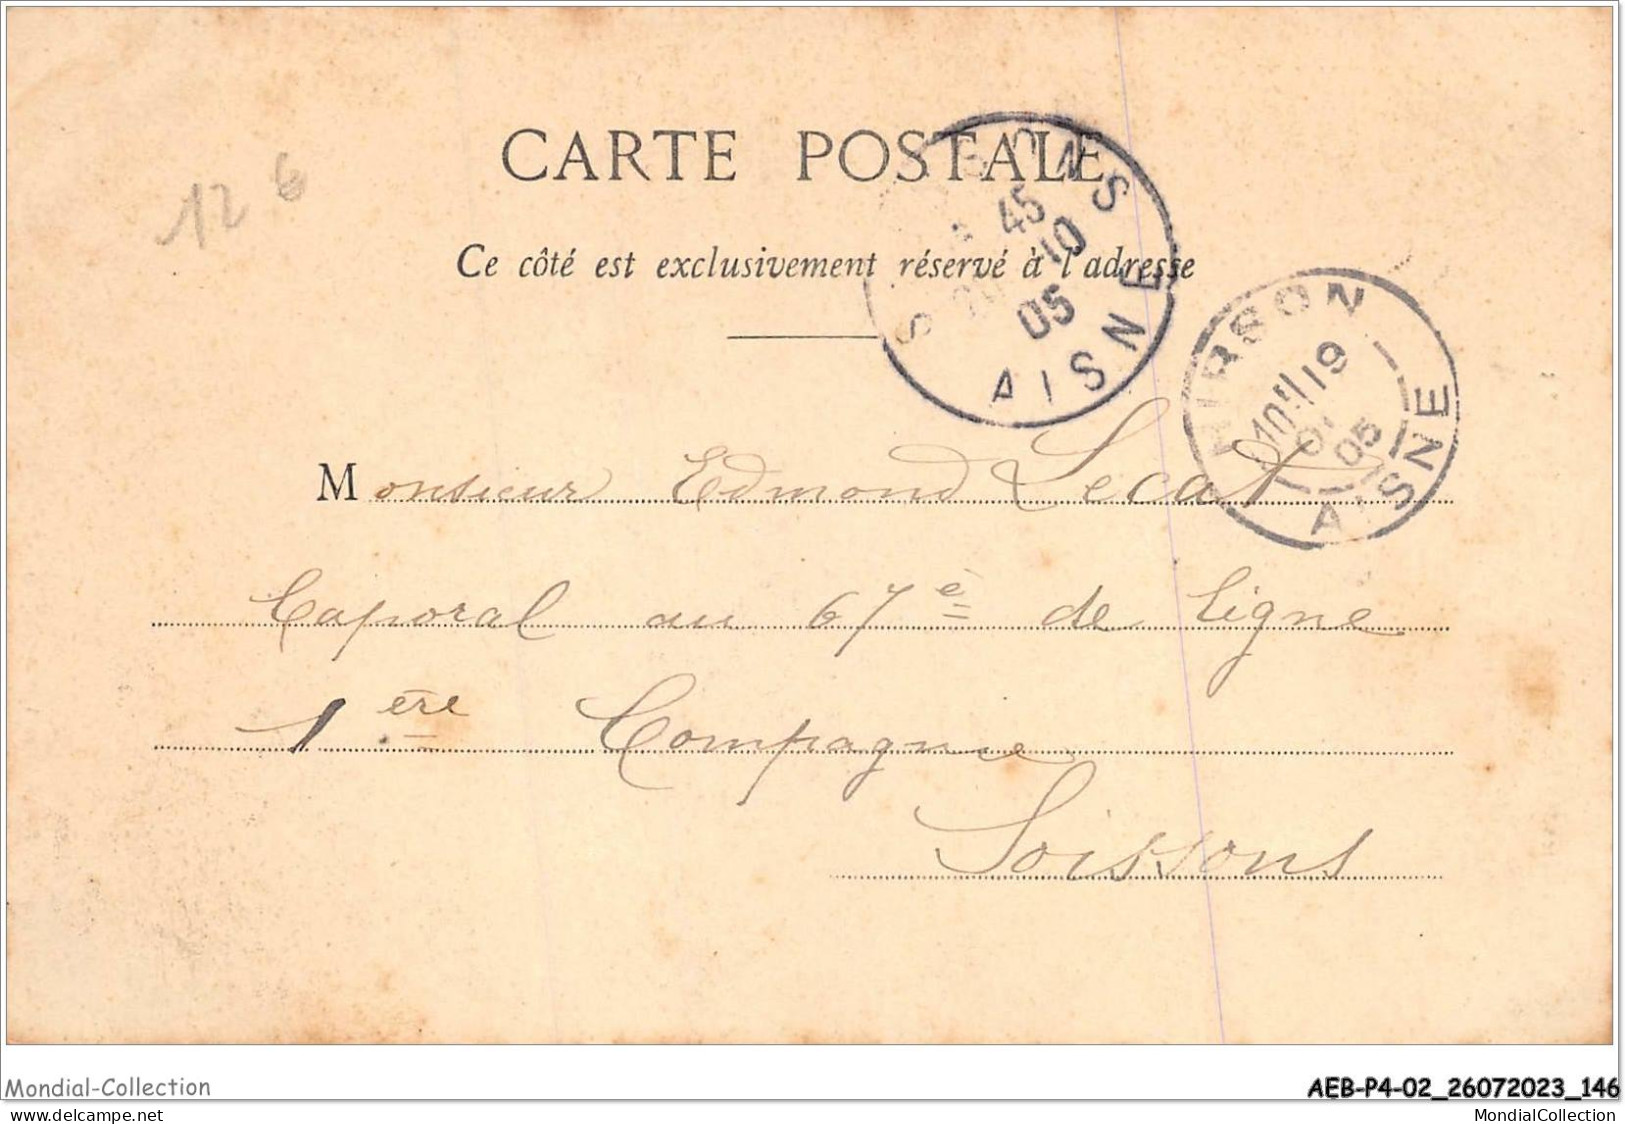 CARTE POSTALE
12 6
Ce côté est exclusivement réservé à l'adresse
45
10
05
AISNE
HIRSON
19
05
AISNE
Monsieur Edmond Lecat
Caporal au 67è de ligne
1ère Compagnie
Soissons
Mondial-Collection
AEB-P4-02_26072023_146
www.delcampe.net
MondialCollection